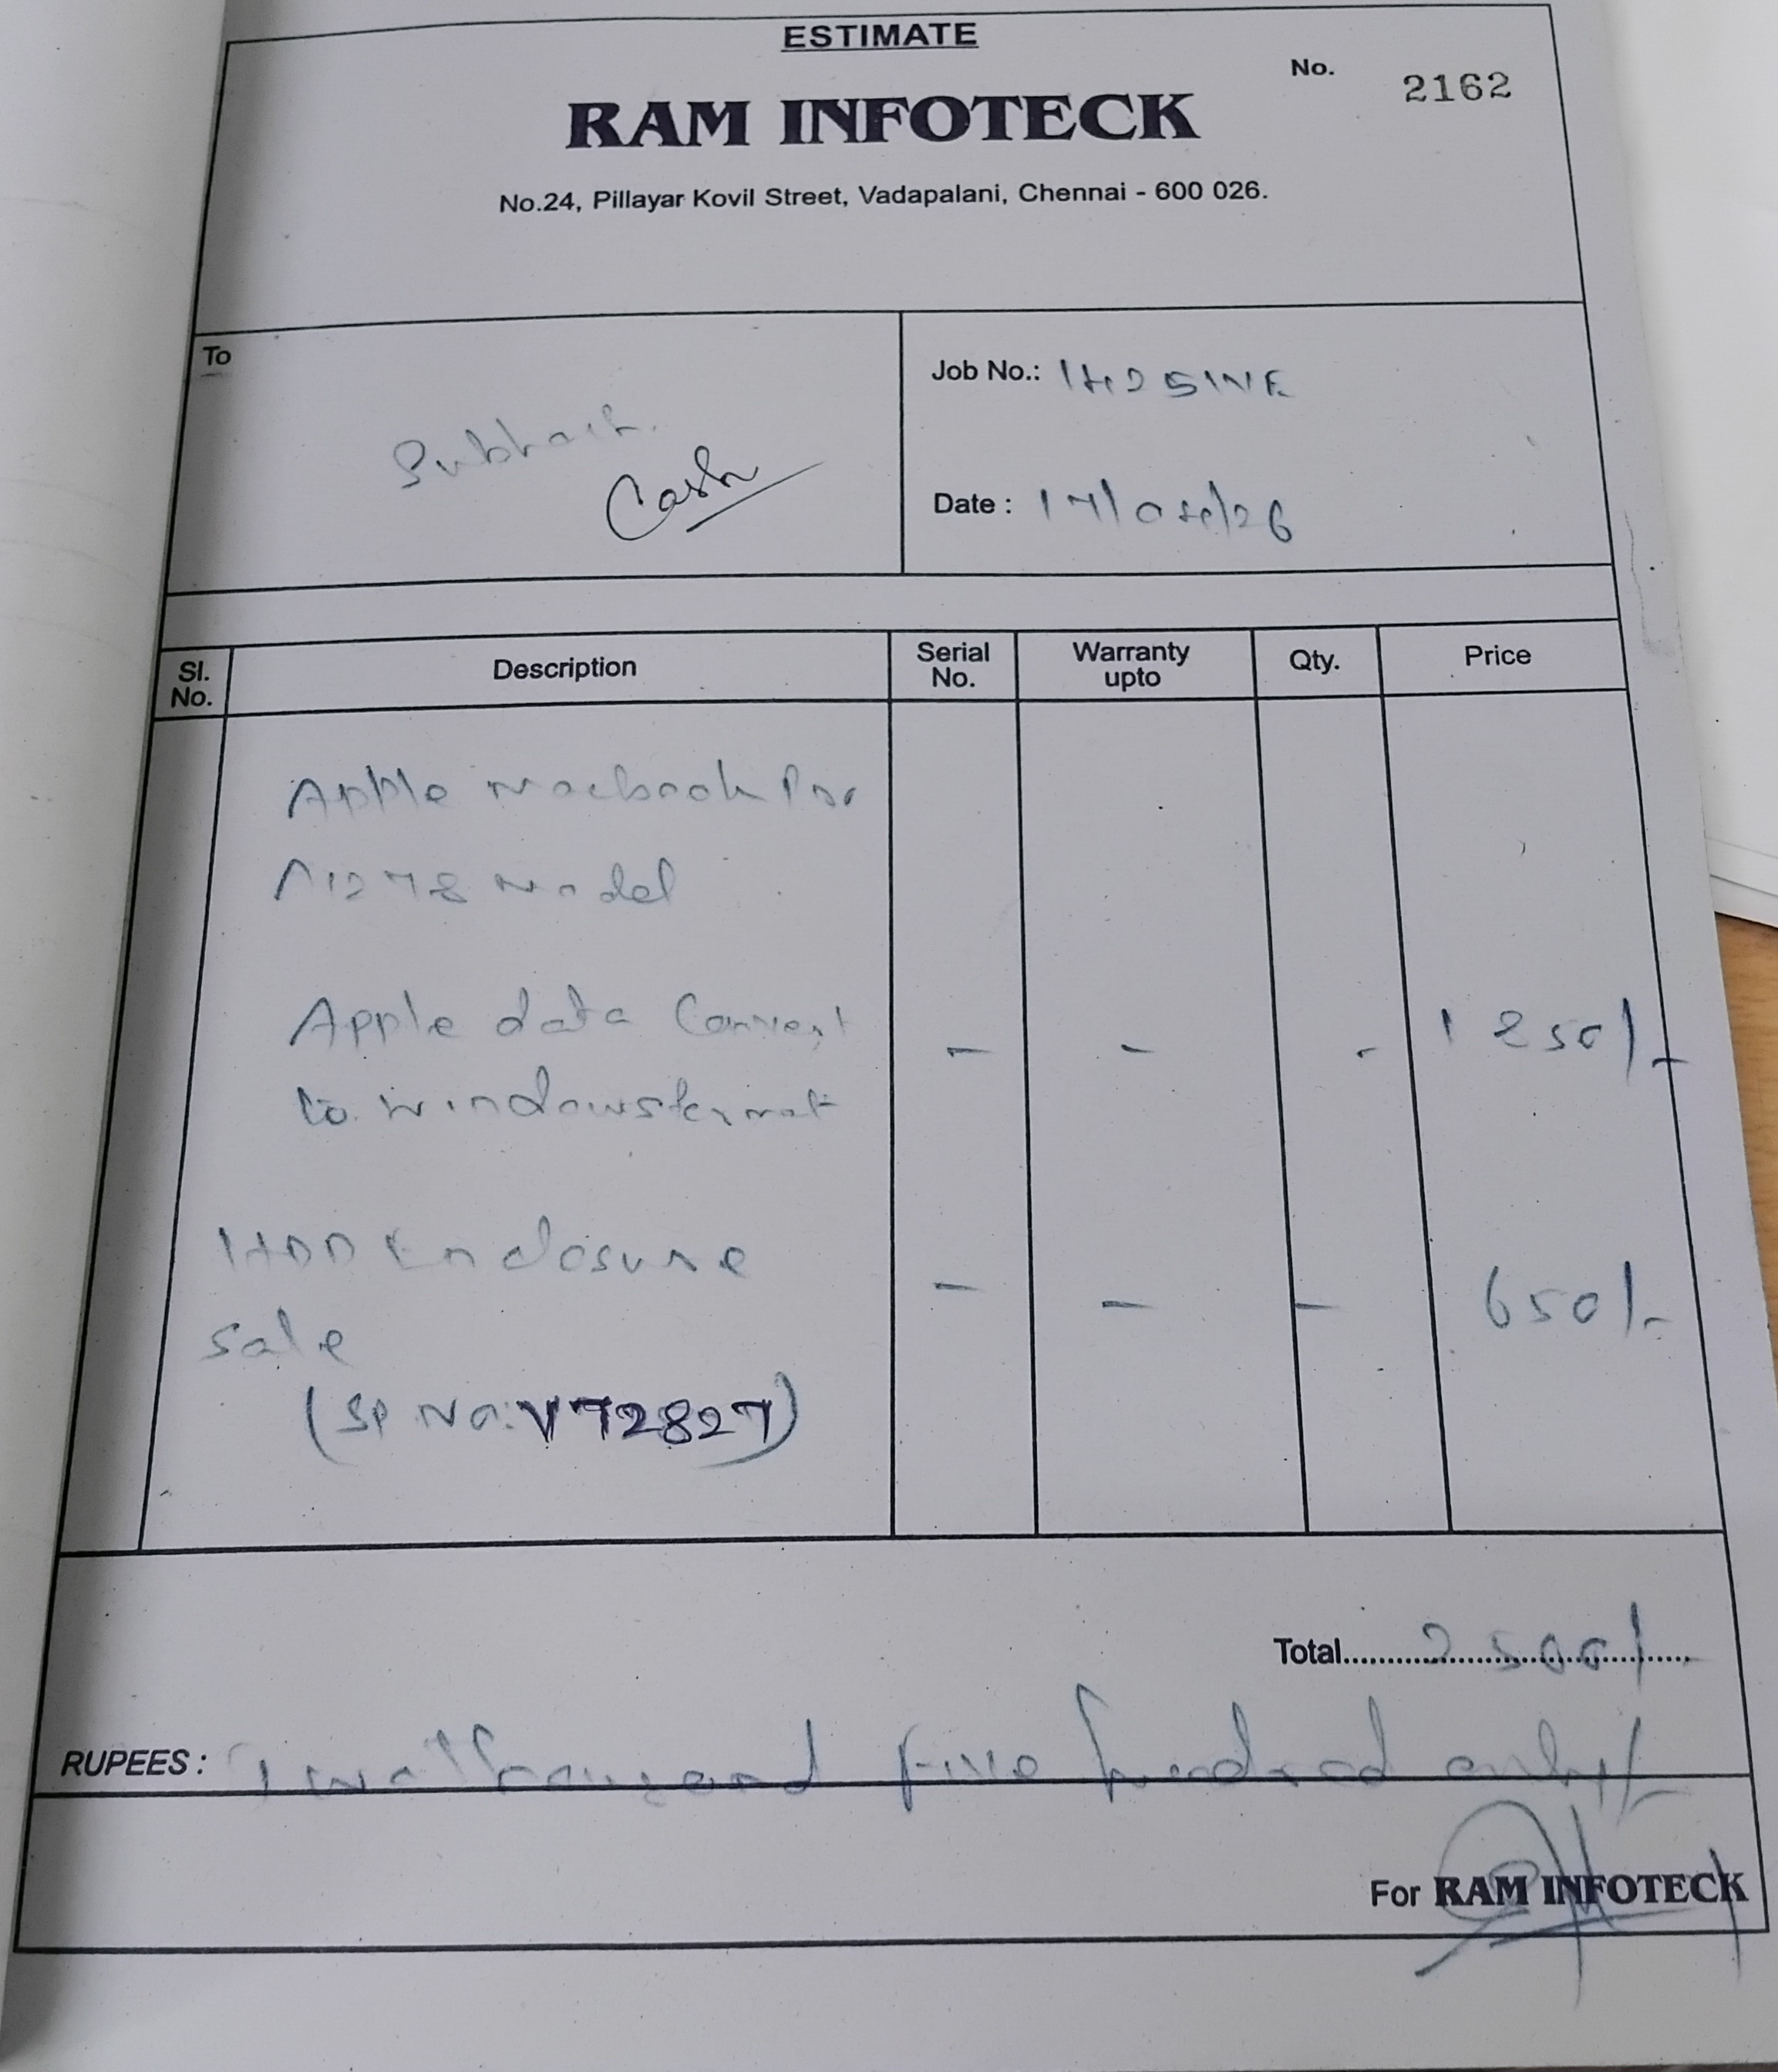 ESTIMATE
No. 2162
RAM INFOTECK
No.24, Pillayar Kovil Street, Vadapalani, Chennai - 600 026.
To
Subhash.
Cash
Job No.:
Date : 17/04/26
Sl. No. Description Serial No. Warranty upto Qty. Price
Apple macbook Pro
A1278 model
Apple data Convert - - - 1850/-
to windows format
HDD Enclosure - - - 650/-
sale
(SP No: V72827)
Total 2500/-
RUPEES : Two thousand five hundred only/-
For RAM INFOTECK